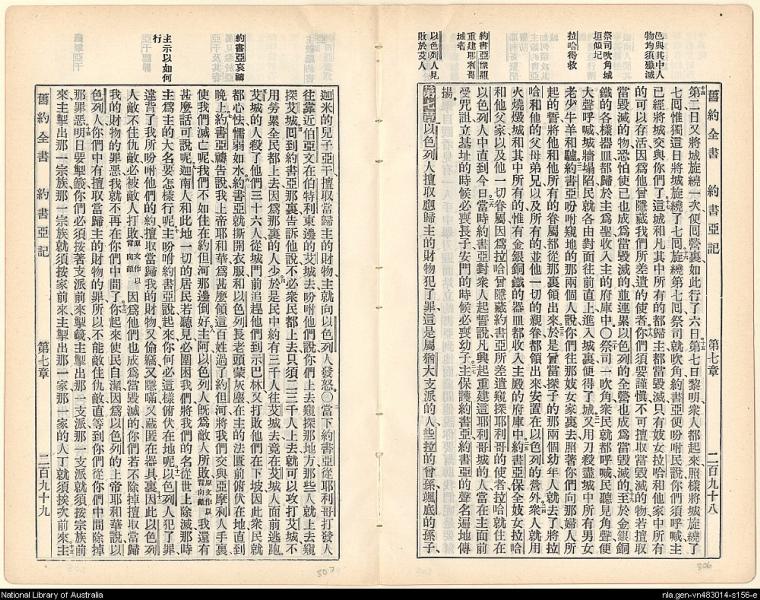 舊約全書 約書亞記 第七章 二百九十八
色與其中人
物均須殲滅
祭司吹角城
垣傾圮
拉哈得救
約書亞咒詛
重建耶利哥
城者
以色列人見
敗於艾人
第二日又將城旋繞一次便回營裏如此行了六日第七日黎明衆人都起來照樣將城旋繞了
七回惟獨這日將城旋繞了七回旋繞第七回祭司就吹角約書亞便吩咐民說你們須要呼喊主
已經將城交與你們了這城和凡其中所有的都歸主都當毀滅只有妓女拉哈和他家中所有
的可以存活因爲他曾隱藏我們所差遣的使者你們須要謹愼不可擅取當毀滅的物若擅取
當毀滅的物恐怕使己也成爲當毀滅的並連累以色列的全營也成爲當毀滅的至於金銀銅
鐵的各樣器皿都歸於主爲聖收入主的府庫中〇祭司一吹角衆民就都呼喊民聽見角聲便
大聲呼喊城牆塌陷民就各由對面往前直上進入城裏便得了城又用刀殺盡城中所有男女
老少牛羊和驢約書亞吩咐窺地的那兩個人說你們往那妓女家裏去照著你們向那婦人所
起的誓將他和他所有的眷屬都從那裏領出來於是曾當探子的那兩個幼年人就去了將拉
哈和他的父母弟兄以及所有的並他一切的親眷都領出來安置在以色列的營外衆人就用
火燒燬城和其中所有的惟有金銀銅鐵的器皿都收入主殿的府庫中約書亞保全妓女拉哈
和他父家以及他一切眷屬因爲拉哈曾隱藏約書亞所差遣窺探耶利哥的使者拉哈就住在
以色列人中直到今日當時約書亞對衆人起誓說凡興起重建這耶利哥城的人當在主面前
受咒詛立基址的時候必喪長子安門的時候必喪幼子主保護約書亞約書亞的聲名遍地傳
揚
第七章以色列人擅取應歸主的財物犯了罪這是屬猶大支派的人些拉的曾孫颯底的孫子
舊約全書 約書亞記 第七章 二百九十九
約書亞哀禱
主示以如何
行
迦米的兒子亞干擅取當歸主的財物主就向以色列人發怒〇當下約書亞從耶利哥打發人
往靠近伯亞文在伯特利東邊的艾城去吩咐他們說你們上去窺探那地方那些人就上去窺
探艾城回到約書亞那裏告訴他說不必衆民都上去只須二三千人上去就可以攻打艾城不
用勞累全民都上去因爲那裏的人少於是民中約有三千人往艾城去竟在艾城人面前逃跑
艾城的人殺了他們三十六人從城門前追趕他們到示巴林又打敗他們在下坡因此衆民就
都心怯懦弱如水約書亞就撕開衣服和以色列長老頭蒙灰塵在主的法匱前俯伏在地直到
晚上約書亞禱告說我上帝耶和華爲甚麼領這百姓過了約但河將我們交與亞摩利人手裏
使我們滅亡呢我們不如住在約但河那邊倒好主阿以色列人旣爲敵人所敗我還有
甚麼話可說呢迦南人和此地一切的居民若聽見必圍困我們將我們的名從世上除滅那時
主爲主的大名要怎樣行呢主吩咐約書亞說起來你何必這樣俯伏在地呢以色列人犯了罪
違背了我所吩咐他們的約擅取當歸我的財物又偷竊又隱瞞又藏匿在器具裏因此以色列
人敵不住仇敵必被敵人打敗因爲他們也成爲當毀滅的你們若不除掉擅取當歸
我的財物的罪惡我就不再在你們中間了你起來使民自潔因爲以色列的主帝耶和華說以
色列人你們中有擅取當歸主的財物的罪所以不能敵住仇敵直等到你們從你們中間除掉
那罪惡明日要掣籤你們必須按著支派前來掣籤主掣出那一支派那一支派就須按宗族前
來主掣出那一宗族那一宗族就須按家前來主掣出那一家那一家的人丁就須挨次前來主
National Library of Australia
nla.gen-vn483014-s156-e